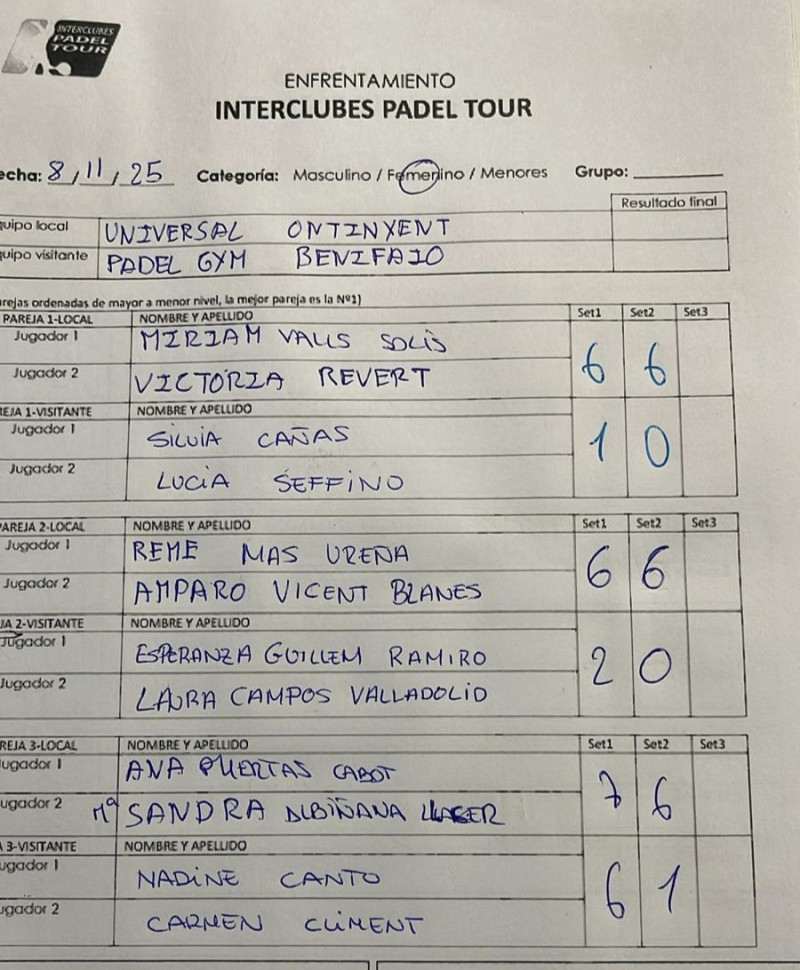 INTERCLUBES
PADEL
TOUR
ENFRENTAMIENTO
INTERCLUBES PADEL TOUR
echa: 8/11/25 Categoría: Masculino / Femenino / Menores Grupo:
Resultado final
quipo local UNIVERSAL ONTINYENT
quipo visitante PADEL GYM BENIFAIO
arejas ordenadas de mayor a menor nivel, la mejor pareja es la Nº1)
PAREJA 1-LOCAL NOMBRE Y APELLIDO Set1 Set2 Set3
Jugador 1 MIRIAM VALLS SOLÍS
6 6
Jugador 2 VICTORIA REVERT
REJA 1-VISITANTE NOMBRE Y APELLIDO
Jugador 1 SILVIA CAÑAS
1 0
Jugador 2 LUCIA SEFFINO
PAREJA 2-LOCAL NOMBRE Y APELLIDO Set1 Set2 Set3
Jugador 1 REME MAS UREÑA
6 6
Jugador 2 AMPARO VICENT BLANES
JA 2-VISITANTE NOMBRE Y APELLIDO
Jugador 1 ESPERANZA GUILLEM RAMIRO
2 0
Jugador 2 LAURA CAMPOS VALLADOLID
REJA 3-LOCAL NOMBRE Y APELLIDO Set1 Set2 Set3
ugador 1 ANA PUERTAS CABOT
7 6
ugador 2 Mª SANDRA ALBIÑANA
A 3-VISITANTE NOMBRE Y APELLIDO
ugador 1 NADINE CANTO
6 1
ugador 2 CARMEN CLIMENT